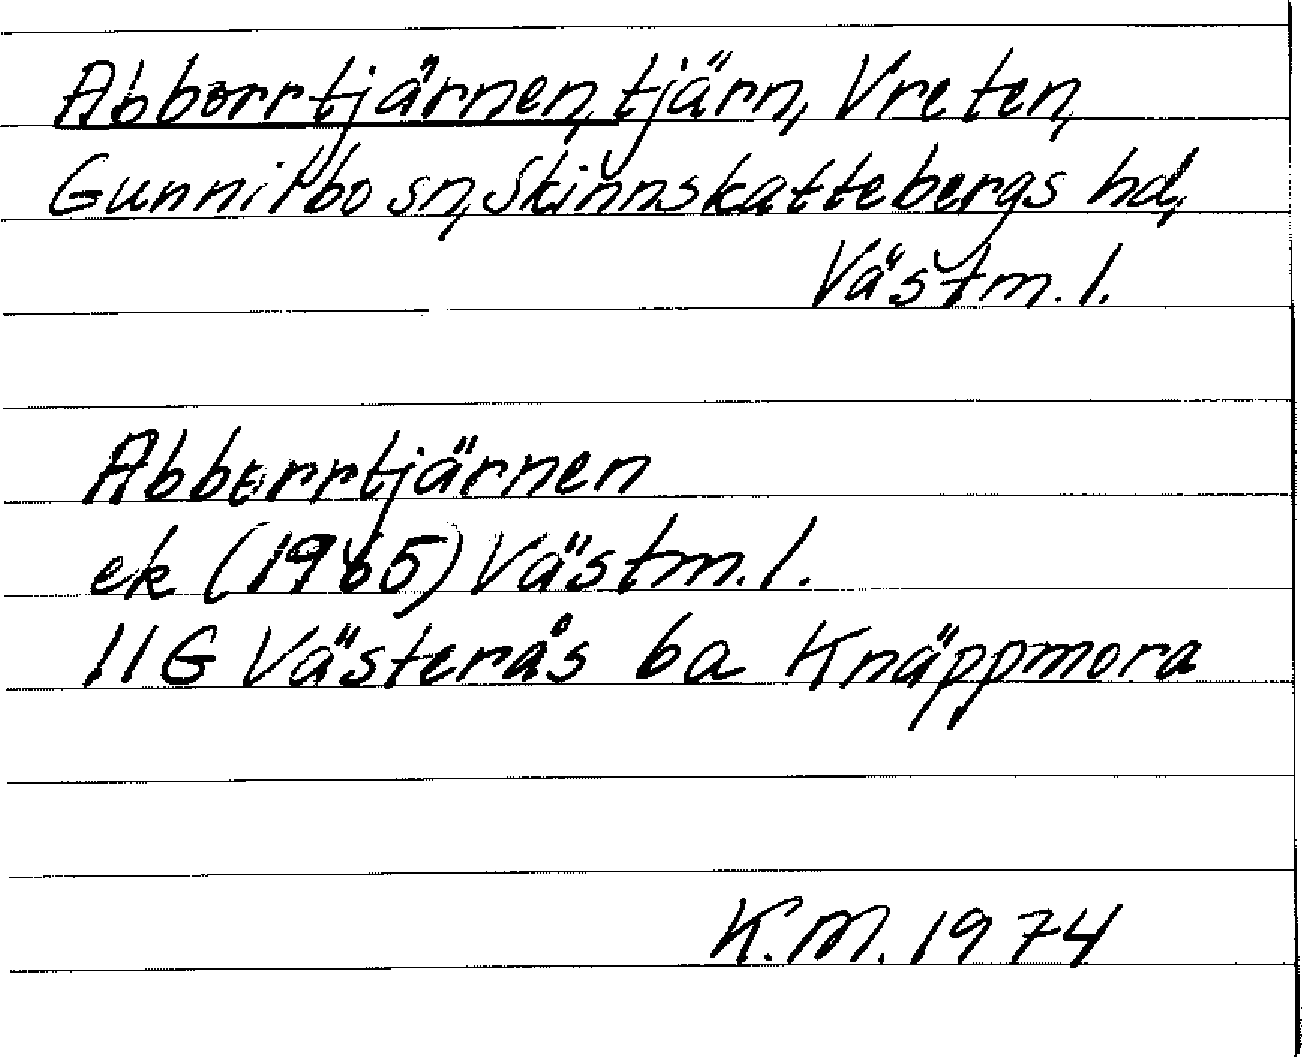 Abborrtjärnen, tjärn, Vreten,
Gunnilbo sn, Skinnskattebergs hd,
Västm. l.
Abborrtjärnen
ek (1965) Västm. l.
11G Västerås 6a Knäppmora
K.M. 1974